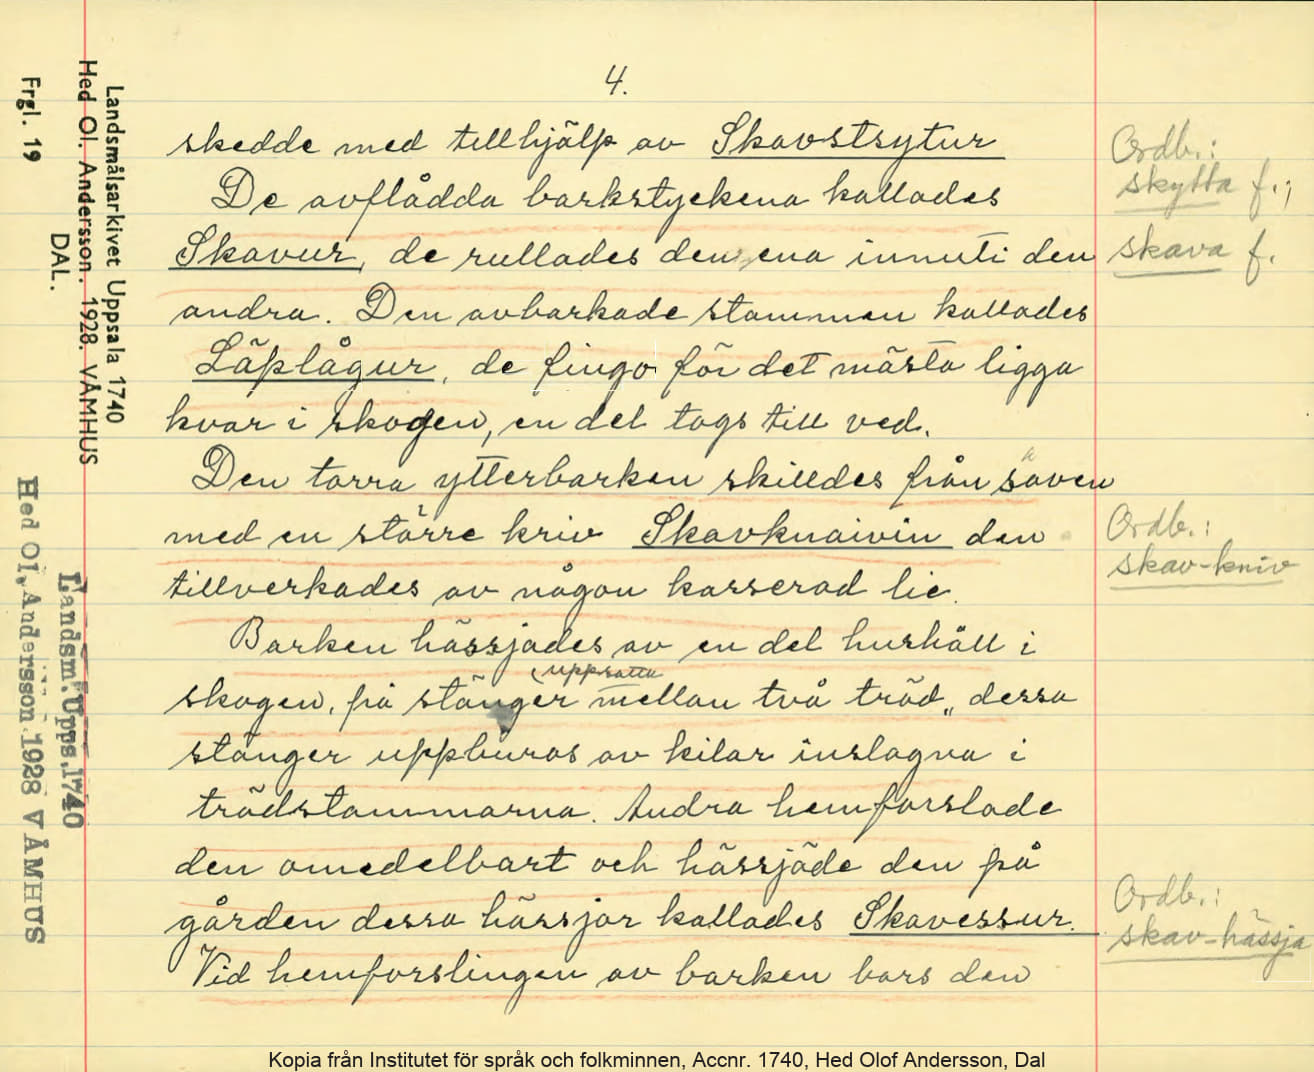 4.
skedde med tillhjälp av Skavstsytur
De avflådda barkstyckena kallades
Skavur, de rullades den ena innuti den
andra. Den avbarkade stammen kallades
Läplågur, de fingo för det mästa ligga
kvar i skogen, en del togs till ved.
Den torra ytterbarken skilldes från saven
med en större kniv Skavknaivin den
tillverkades av någon kasserad lie.
Barken hässjades av en del hushåll i
uppsatta
skogen, på stänger mellan två träd, dessa
stänger uppburos av kilar inslagna i
trädstammarna. Andra hemforslade
den omedelbart och hässjade den på
gården dessa hässjor kallades Skavessur.
Vid hemforslingen av barken bars den
Ordb.:
skytta f.;
skava f.
Ordb.:
skav-kniv
Ordb.:
skav-hässja
Landsmålsarkivet Uppsala 1740
Hed Ol. Andersson. 1928. VÅMHUS
DAL.
Frgl. 19
Landsm. Upps. 1740
Hed Ol. Andersson 1928 VÅMHUS
Kopia från Institutet för språk och folkminnen, Accnr. 1740, Hed Olof Andersson, Dal